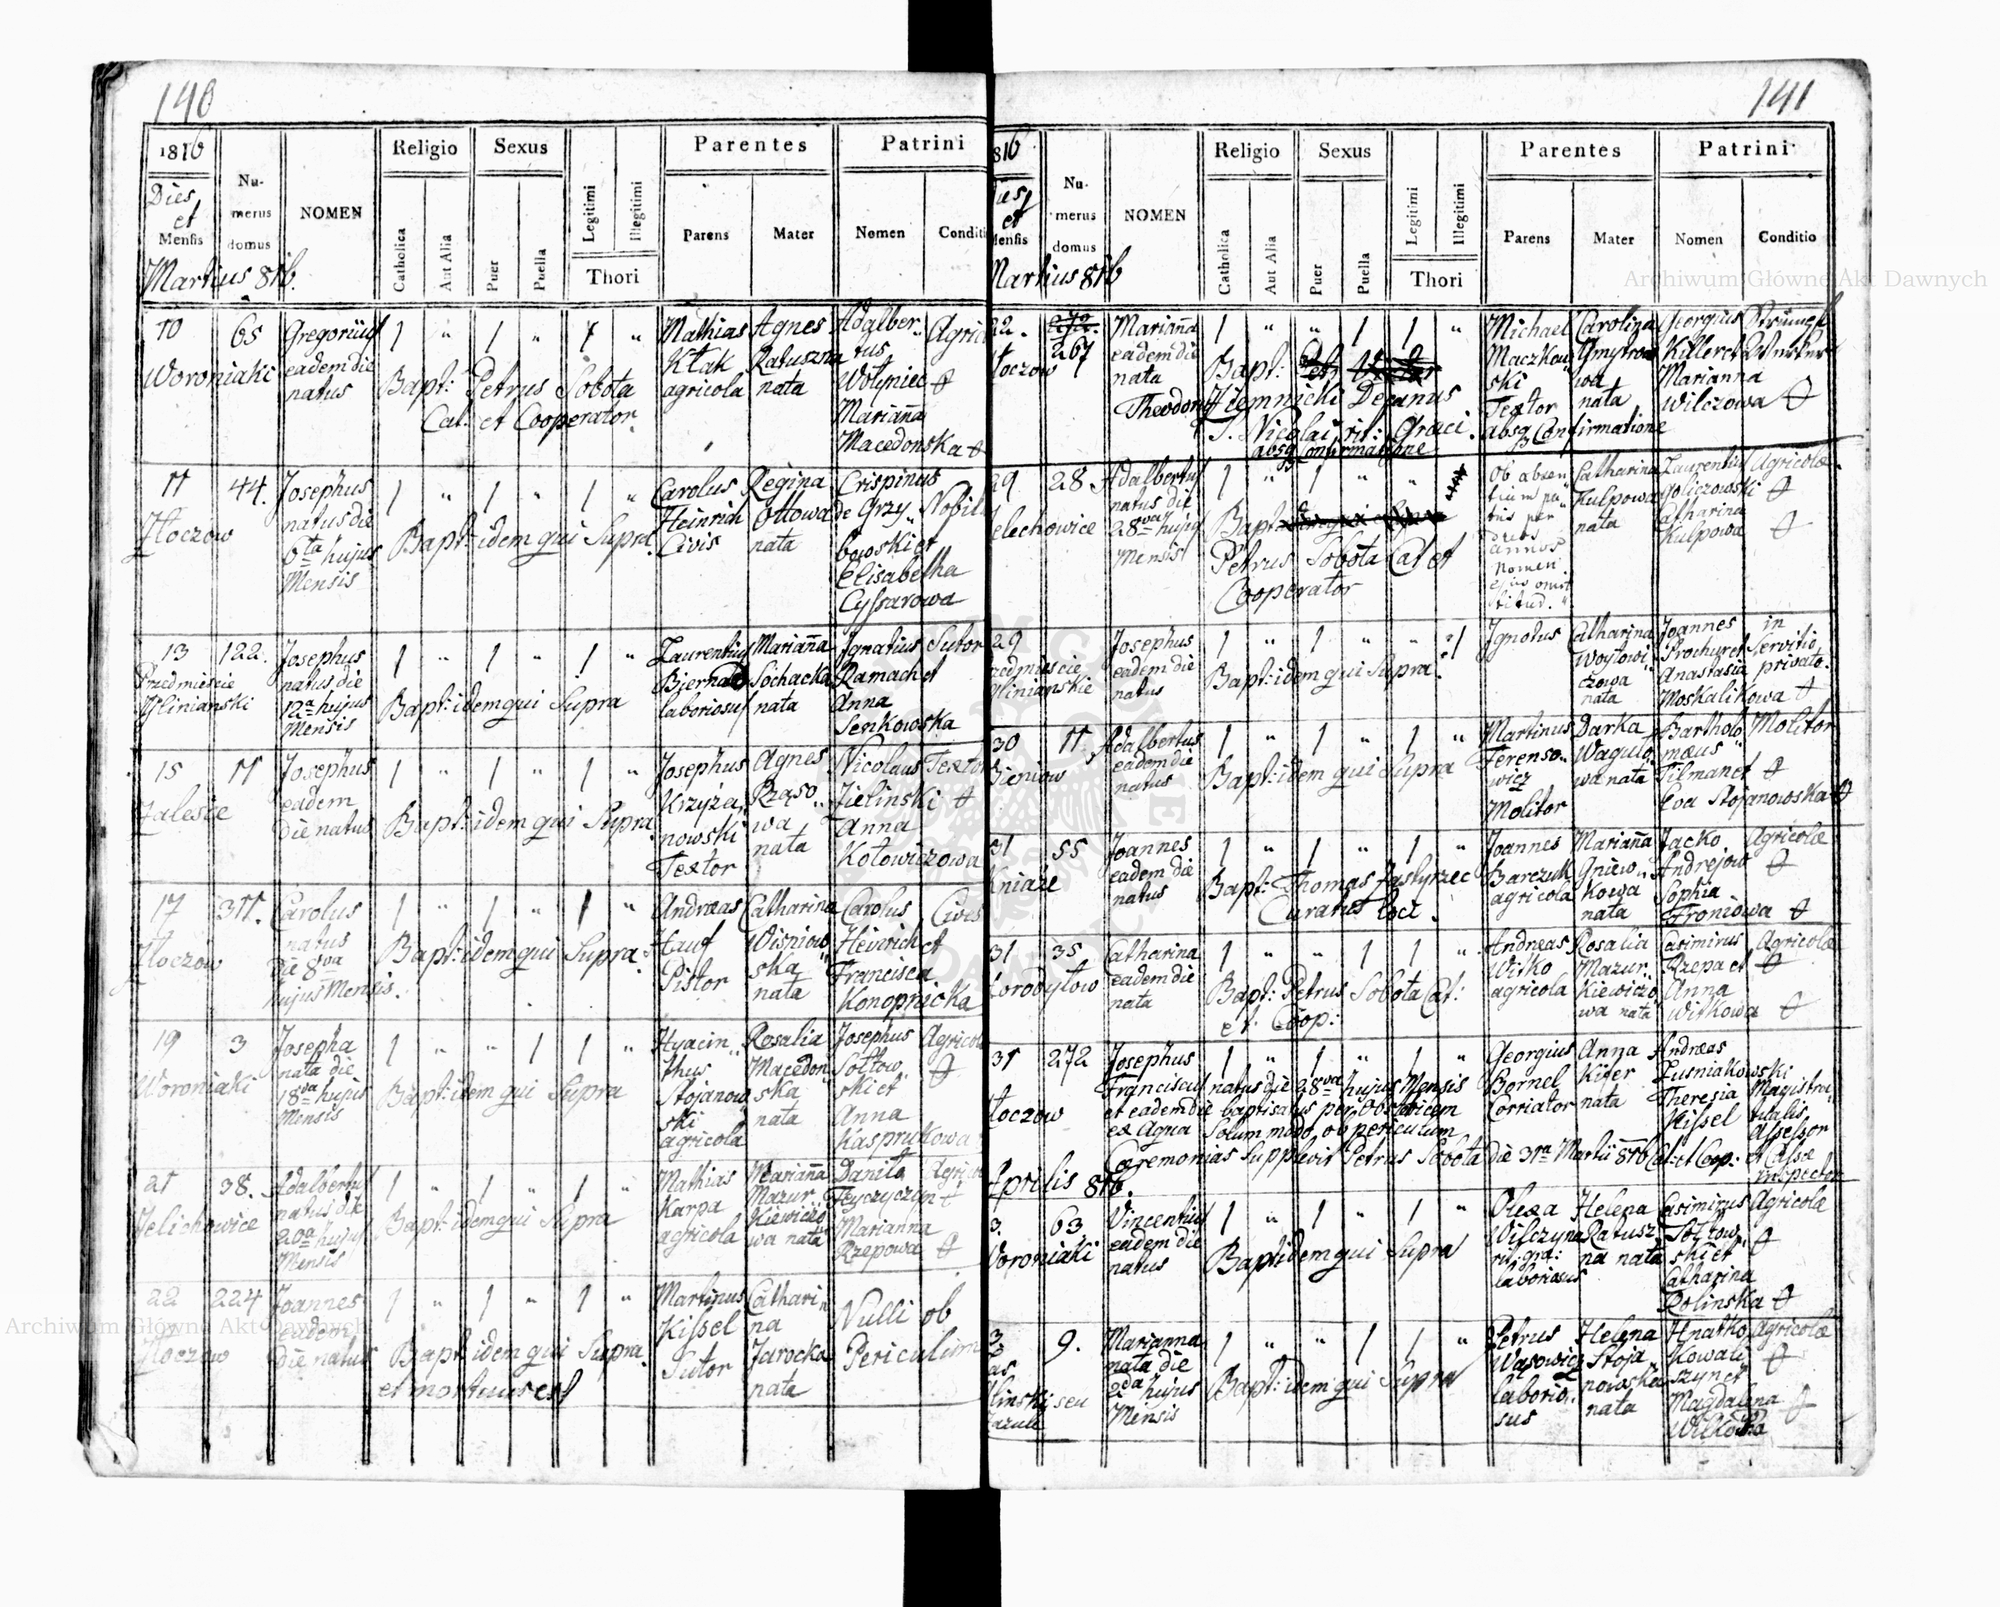 140
1816
Dies
et
Mensis
Martius 816.
Nu-
merus
domus
NOMEN
Religio
Catholica
Aut Alia
Sexus
Puer
Puella
Legitimi
Illegitimi
Thori
Parentes
Parens
Mater
Patrini
Nomen
Conditi
10 65 Gregorius 1 " 1 " 1 " Mathias Agnes Adalber" Agric
Woroniaki eadem die Kłak Ratuszna tus
natus Bapt: Petrus Sobota agricola nata Wołyniec
Cat. et Cooperator. Marianna
Macedonska
11 44. Josephus 1 " 1 " 1 " Carolus Regina Crispinus
Złoczow natus die Heinrich Ottowa de Grzy" Nobil
6ta hujus Bapt: idem qui Supra. Civis nata bowski et
Mensis Elisabetha
Cyssarowa
13 122. Josephus 1 " 1 " 1 " Laurentius Marianna Ignatius Sutor
Przedmieście natus die Biernad Sochacka Ramach et
Glinianski 12a hujus Bapt: idem qui Supra laboriosus nata Anna
Mensis Senkowska
15 11 Josephus 1 " 1 " 1 " Josephus Agnes Nicolaus Textor
Zalesie eadem Krzyża" Rząso" Zielinski
die natus Bapt: idem qui Supra. nowski wa Anna
Textor nata Kotowiczowa
17 311. Carolus 1 " 1 " 1 " Andreas Catharina Carolus Civis
Złoczow natus Hauf Wispiow" Heinrich et
die 8va Bapt: idem qui Supra. Pistor ska Francisca
hujus Mensis. nata Konopnicka
19 3 Josepha 1 " " 1 1 " Hyacin" Rosalia Josephus Agricol
Woroniaki nata die thus Macedon" Sottow
18va hujus Bapt: idem qui Supra Stojanow ska ski et
Mensis ski nata Anna
agricola Kasprukowa
21 38. Adalbertus 1 " 1 " 1 " Mathias Marianna Daniło Agric
Jelichowice natus die Karpa Mazur" Hyczyczyn
20a hujus Bapt: idem qui Supra agricola kiewiczo Marianna
Mensis wa nata Rzepowa
22 224 Joannes 1 " 1 " 1 " Martinus Cathari" Nulli ob
Złoczow eadem Kissel na Periculum
die natus Bapt: idem qui Supra. Sutor Jarocka
et mortuus est nata
141
816
Dies
et
Mensis
Martius 816
Nu-
merus
domus
NOMEN
Religio
Catholica
Aut Alia
Sexus
Puer
Puella
Legitimi
Illegitimi
Thori
Parentes
Parens
Mater
Patrini
Nomen
Conditio
22. 267 Marianna 1 " " 1 1 " Michael Carolina Georgius
łoczow eadem die Maczkow" Killer et
nata Bapt: ski wa Marianna
Theodorus Ziemnicki Decanus Textor nata Wilczowa
S. Nicolai rit: Graeci. absq Confirmatione
absq Confirmatione
29 28. Adalbertus 1 " 1 " " Ob absen" Catharina Laurentius Agricolae
elechowice natus die tium pa" Kulpowa Goliczowski
28va hujus Bapt: tris per nata Catharina
Mensis Petrus Sobota Cat et annos Kulpowa
Cooperator nomen
29 Josephus 1 " 1 " " 1 Ignotus Catharina Joannes in
zedmieście eadem die Woytowi" Prochur et Servitio
glinianskie natus Bapt: idem qui Supra. czowa Anastasia privato.
nata Moskalikowa
30 11 Adalbertus 1 " 1 " 1 " Martinus Darka Bartholo Molitor
Bieniow eadem die Ferenso" Wagulo" maeus
natus Bapt: idem qui Supra wicz wa nata Tilman et
Molitor Eva Stojanowska
31 55 Joannes 1 " 1 " 1 " Joannes Marianna Jacko Agricolae
Kniaże eadem die Barczuk Gniew" Andrejow
natus Bapt: Thomas Pastyrzec agricola kowa Sophia
Curatus loci. nata Froniowa
31 35 Catharina 1 " " 1 1 " Andreas Rosalia Casimirus Agricolae
orodyłow eadem die Witko Mazur" Rzepa et
nata Bapt: Petrus Sobota Cat: agricola kiewiczo Anna
et Coop: wa nata Witkowa
31 272 Josephus 1 " 1 " 1 " Georgius Anna Andreas
Franciscus natus die 28va hujus Mensis Bornel Kifer Lusniakowski
łoczow et eadem die baptisatus per Obstetricem Corriator nata Theresia Magistra"
ex Aqua Solum modo ob periculum Kissel tualis
Ceremonias Supplevit Petrus Sobota die 31a Martii 816 Cat et Coop: Assessor
et Cassae
inspector
Aprilis 816.
3. 63 Vincentius 1 " 1 " 1 " Olexa Helena Casimirus Agricolae
Woroniaki eadem die Wilczyna Ratusz" Sottow"
natus Bapt idem qui Supra rit: gra: na nata ski et
laboriosus Catharina
Rolinska
3 9. Marianna 1 " " 1 1 " Petrus Helena Hnatko Agricolae
as nata die Wąsowicz Stoja" Kowali"
linski seu 2da hujus Bapt: idem qui Supra laborio" nowska szyn et
Lazuli Mensis sus nata Magdalena
Witkowa
Archiwum Główne Akt Dawnych
Archiwum Główne Akt Dawnych